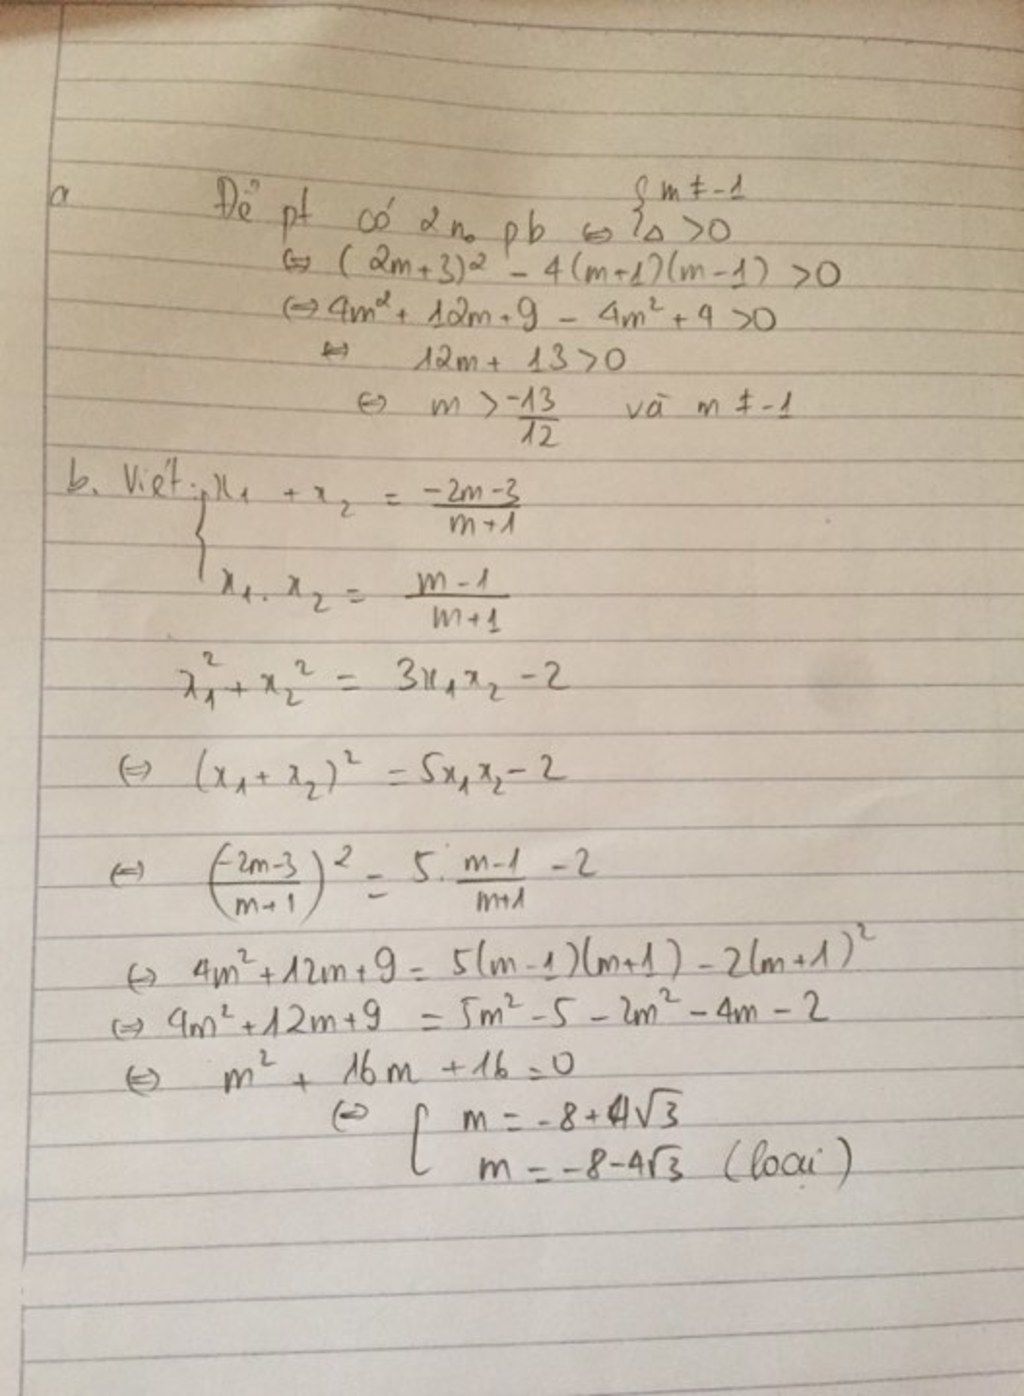 a Để pt có 2 n₀ pb ⇔ { m ≠ -1
Δ > 0
⇔ (2m+3)² - 4(m+1)(m-1) > 0
⇔ 4m² + 12m + 9 - 4m² + 4 > 0
⇔ 12m + 13 > 0
⇔ m > -13/12 và m ≠ -1
b. Viét: { x₁ + x₂ = (-2m-3)/(m+1)
x₁.x₂ = (m-1)/(m+1)
x₁² + x₂² = 3x₁x₂ - 2
⇔ (x₁+x₂)² = 5x₁x₂ - 2
⇔ ((-2m-3)/(m+1))² = 5.(m-1)/(m+1) - 2
⇔ 4m² + 12m + 9 = 5(m-1)(m+1) - 2(m+1)²
⇔ 4m² + 12m + 9 = 5m² - 5 - 2m² - 4m - 2
⇔ m² + 16m + 16 = 0
⇔ [ m = -8 + 4√3
m = -8 - 4√3 (loại)